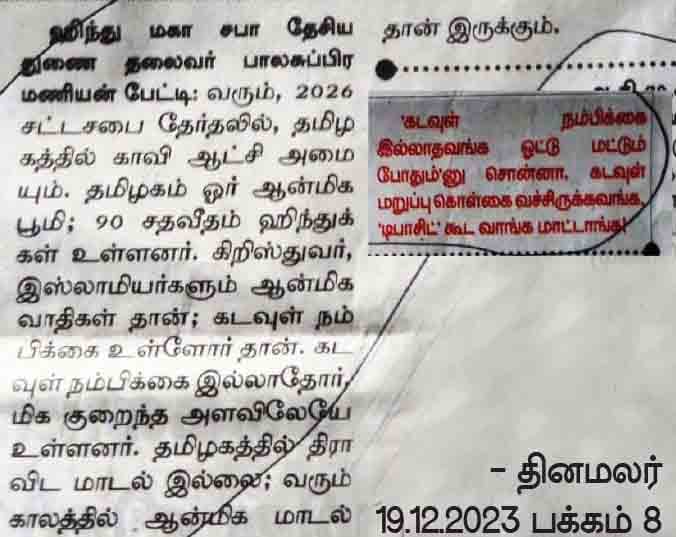 ஹிந்து மகா சபா தேசிய
துணை தலைவர் பாலசுப்பிர
மணியன் பேட்டி: வரும், 2026
சட்டசபை தேர்தலில், தமிழ
கத்தில் காவி ஆட்சி அமை
யும். தமிழகம் ஓர் ஆன்மிக
பூமி; 90 சதவீதம் ஹிந்துக்
கள் உள்ளனர். கிறிஸ்துவர்,
இஸ்லாமியர்களும் ஆன்மிக
வாதிகள் தான்; கடவுள் நம்
பிக்கை உள்ளோர் தான். கட
வுள் நம்பிக்கை இல்லாதோர்,
மிக குறைந்த அளவிலேயே
உள்ளனர். தமிழகத்தில் திரா
விட மாடல் இல்லை; வரும்
காலத்தில் ஆன்மிக மாடல்
தான் இருக்கும்.
'கடவுள் நம்பிக்கை
இல்லாதவங்க ஓட்டு மட்டும்
போதும்'னு சொன்னா, கடவுள்
மறுப்பு கொள்கை வச்சிருக்கவங்க,
'டிபாசிட்' கூட வாங்க மாட்டாங்க!
- தினமலர்
19.12.2023 பக்கம் 8